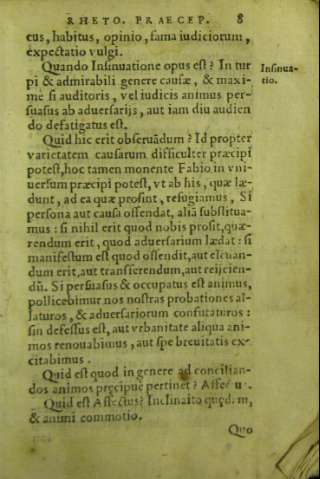 RHETO. PRAECEP. 8
cus, habitus, opinio, fama iudiciorum,
expectatio vulgi.
Quando Insinuatione opus est? In tur
pi & admirabili genere causæ, & maxi-
me si auditoris, vel iudicis animus per-
suasus ab aduersarijs, aut iam diu audien
do defatigatus est.
Insinua-
tio.
Quid hic erit obseruãdum? Id propter
varietatem causarum difficulter præcipi
potest, hoc tamen monente Fabio in vni-
uersum præcipi potest, vt ab his, quæ læ-
dunt, ad ea quæ prosint, refugiamus, Si
persona aut causa offendat, aliã substitua-
mus: si nihil erit quod nobis prosit, quæ-
rendum erit, quod aduersarium lædat: si
manifestum est quod offendit, aut eleuan-
dum erit, aut transferendum, aut reijcien-
dũ. Si persuasus & occupatus est animus,
pollicebimur nos nostras probationes al-
laturos, & aduersariorum confutaturos:
sin defessus est, aut vrbanitate aliqua ani-
mos renouabimus, aut spe breuitatis ex-
citabimus.
Quid est quod in genere ad concilian-
dos animos pręcipue pertinet?
Quid est Affectus? Inclinatio
& animi commotio.
Quo